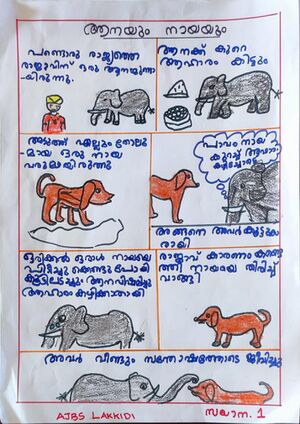 ആനയും നായയും
പണ്ടൊരു രാജ്യത്തെ
രാജാവിന് ഒരു ആനയുണ്ടാ
-യിരുന്നു.
ആനക്ക് കുറെ
ആഹാരം കിട്ടും
അടുത്ത് എല്ലും തോലു
-മായ ഒരു നായ
വരുമായിരുന്നു
പാവം നായ
കുറച്ച് ആഹാരം
അങ്ങനെ അവർ കൂട്ടുകാ
രായി
ഒരിക്കൽ ഒരാൾ നായയെ
പിടിച്ചു കൊണ്ടു പോയി
കൂട്ടിലടച്ചു. ആന വിഷമിച്ചു
ആഹാരം കഴിക്കാതായി
രാജാവ് കാരണം കണ്ടെ
ത്തി നായയെ തിരിച്ച്
വാങ്ങി
അവർ വീണ്ടും സന്തോഷത്തോടെ ജീവിച്ചു
AJBS LAKKIDI
1